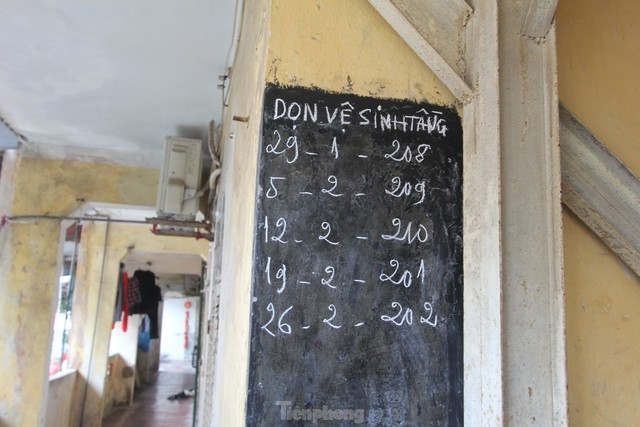 DỌN VỆ SINH TẦNG
29 - 1 - 208
5 - 2 - 209
12 - 2 - 210
19 - 2 - 201
26 - 2 - 202
Tienphong